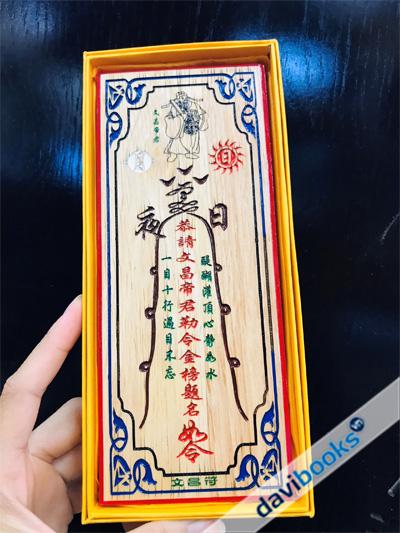 文昌帝君
日
日
夜
醍醐灌頂心静如水
恭請文昌帝君勒令金榜題名如令
一目十行過目未忘
文昌符
davibooks.vn